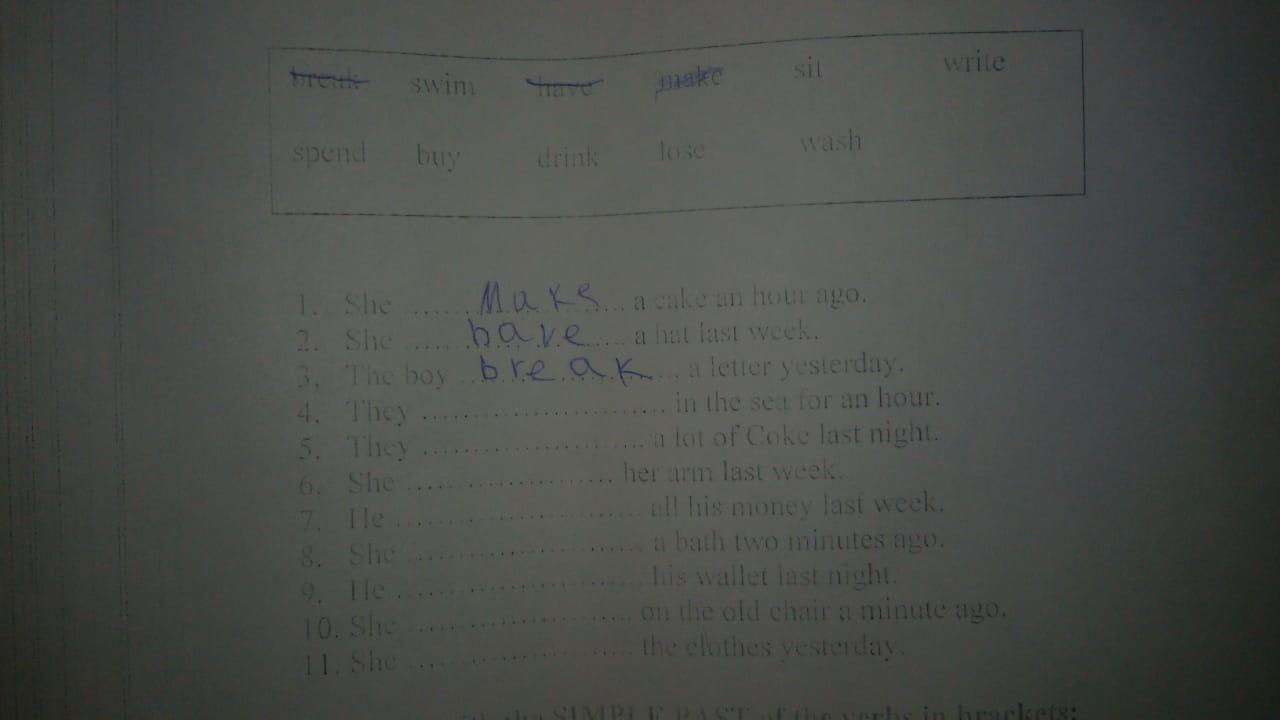 break swim have make sit write
spend buy drink lose wash
1. She ...... Make ... a cake an hour ago.
2. She ...... have .... a hat last week.
3. The boy .. break ... a letter yesterday.
4. They .......................... in the sea for an hour.
5. They ........................ a lot of Coke last night.
6. She ...................... her arm last week.
7. He ......................... all his money last week.
8. She ......................... a bath two minutes ago.
9. He ......................... his wallet last night.
10. She ....................... on the old chair a minute ago.
11. She ....................... the clothes yesterday.
the SIMPLE PAST of the verbs in brackets: